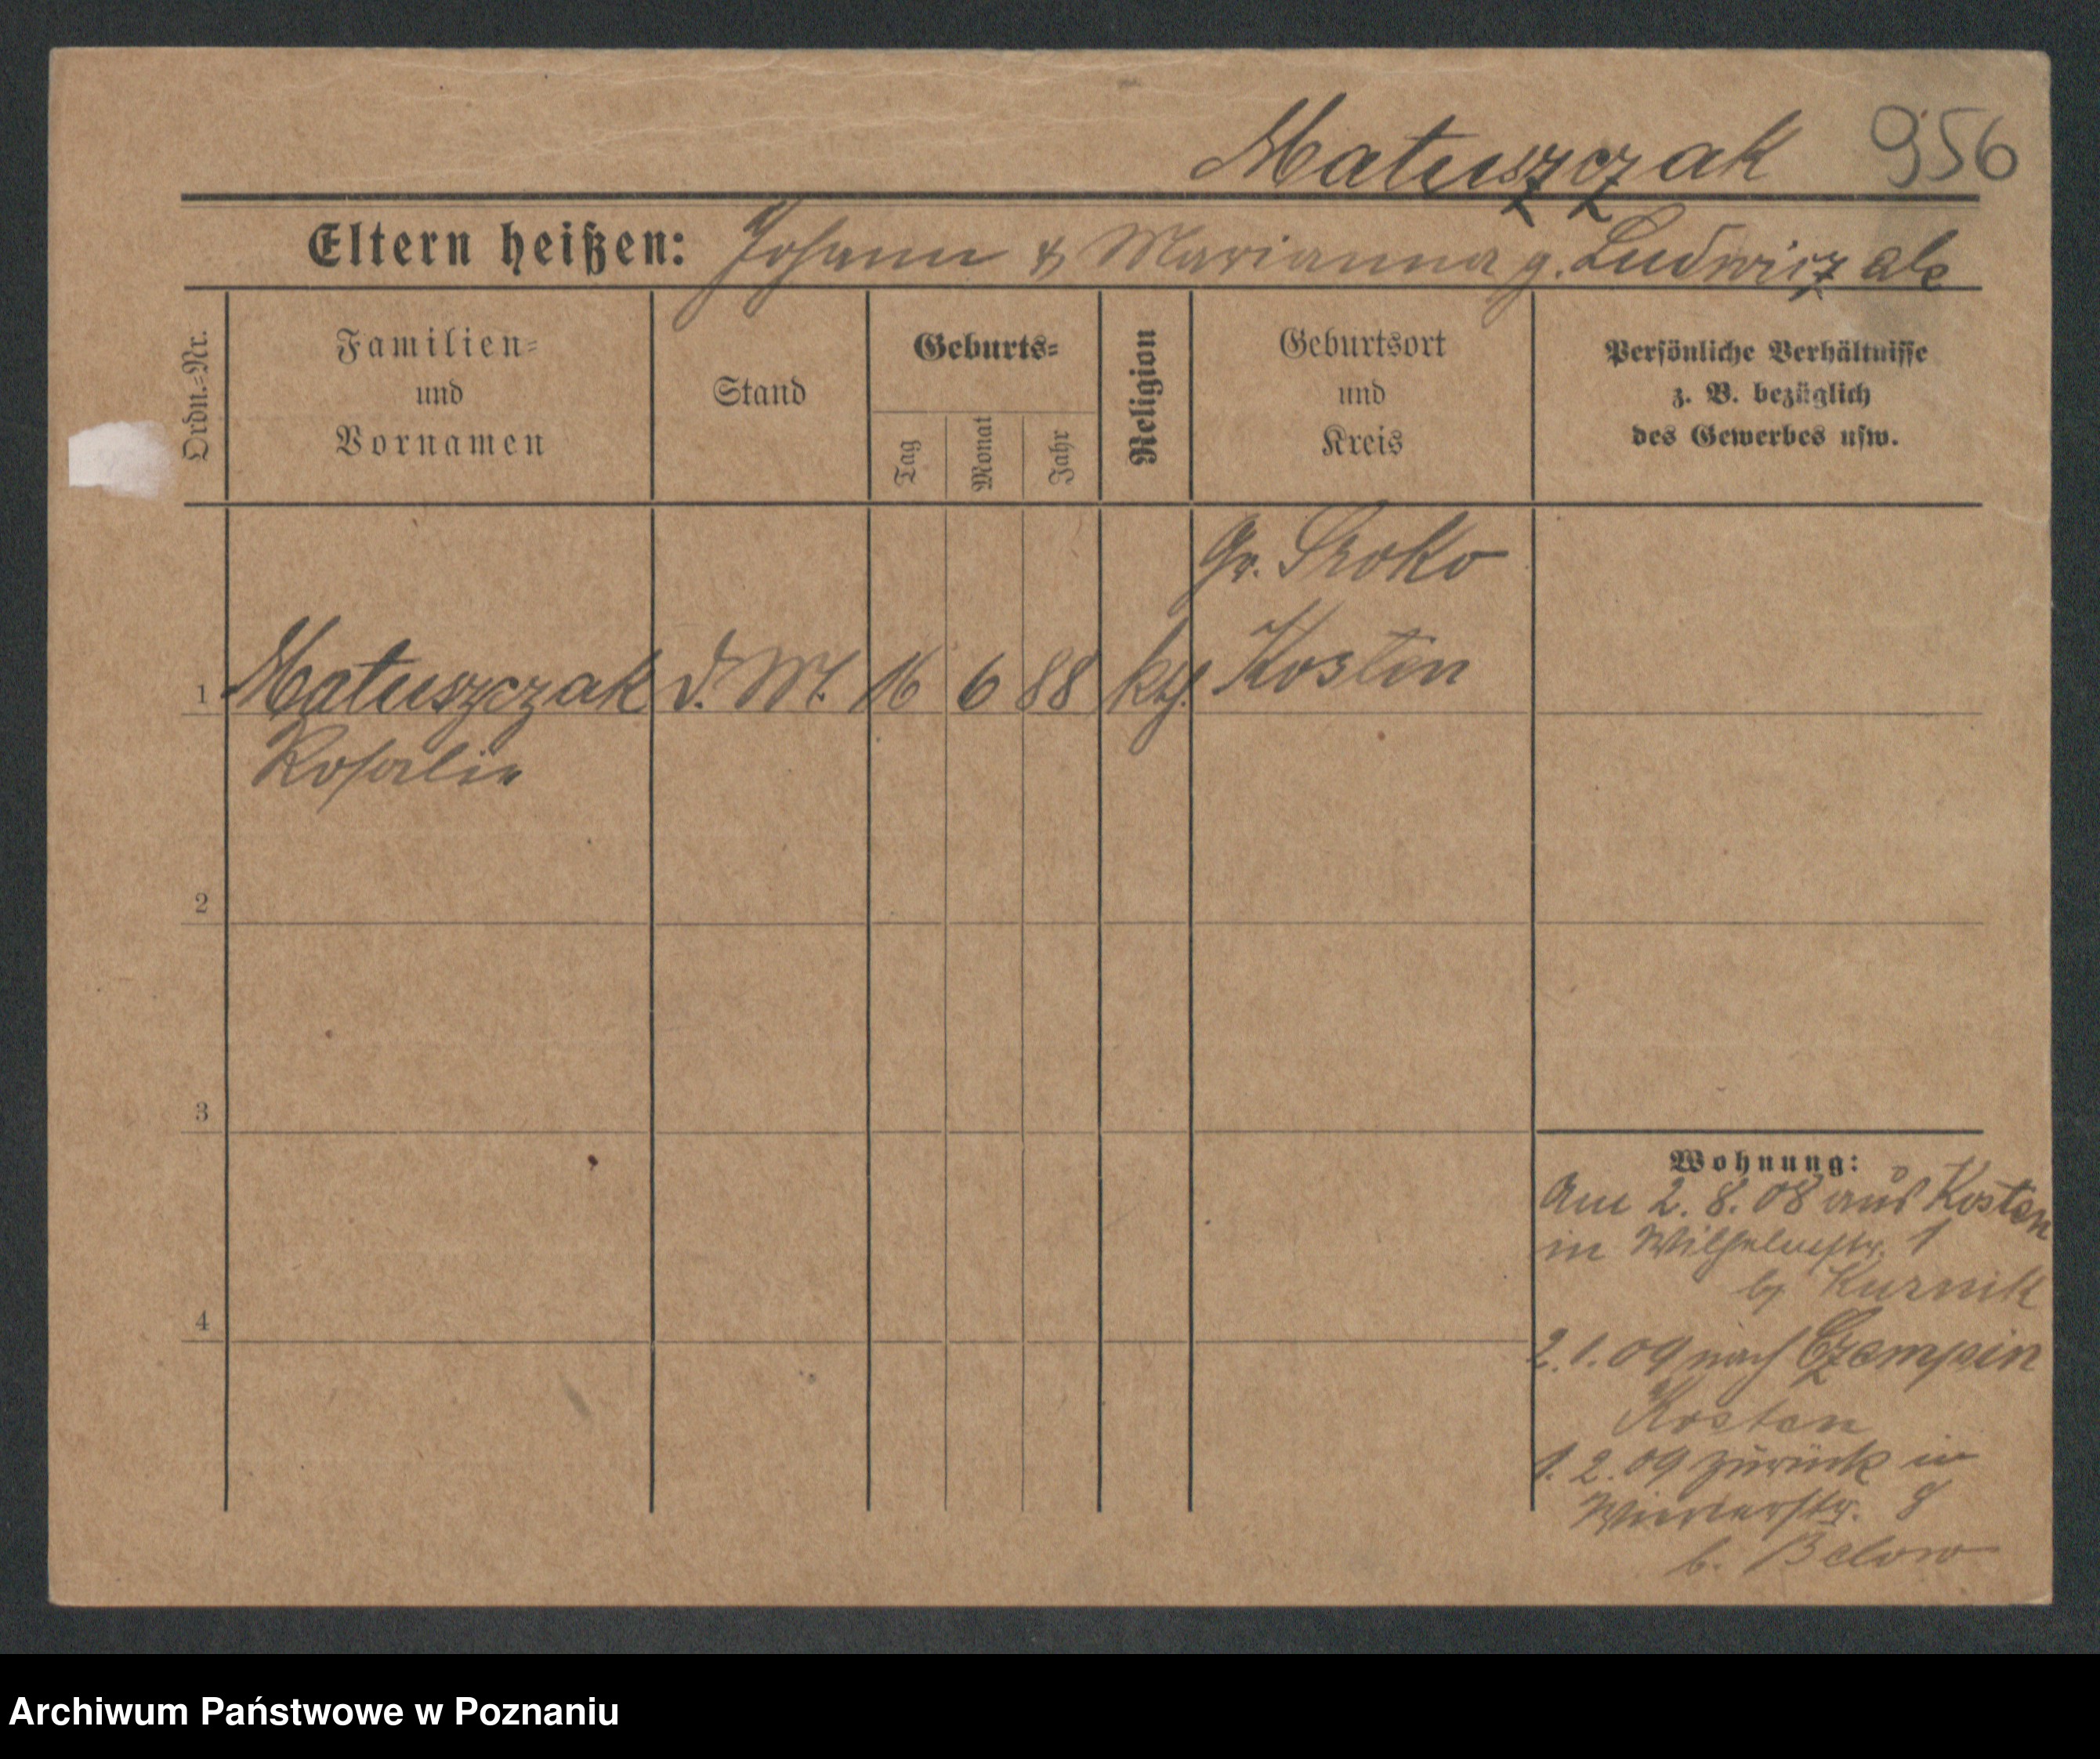 Matuszczak 956
Eltern heißen: Johann & Marianna g. Ludwiczak
Ordn.=Nr.
Familien=
und
Vornamen
Stand
Geburts=
Tag
Monat
Jahr
Religion
Geburtsort
und
Kreis
Persönliche Verhältnisse
z. B. bezüglich
des Gewerbes usw.
Gr. Sroko
1 Matuszczak d. M. 16 6 88 kth. Kosten
Rosalie
2
3
4
Wohnung:
Am 2. 8. 08 aus Kosten
in Wilhelmstr. 1
b/ Kurnik
2. 1. 09 nach Czempin
Kosten
1. 2. 09 zurück in
8
b. Below
Archiwum Państwowe w Poznaniu